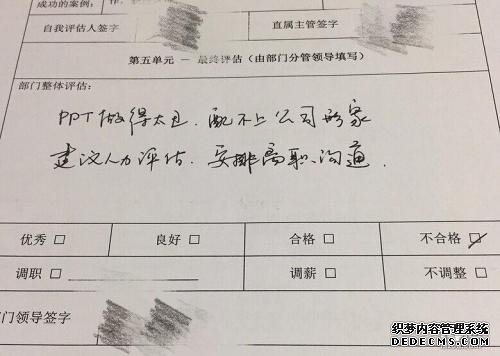 成功的案例：作
自我评估人签字 直属主管签字
第五单元 — 最终评估（由部门分管领导填写）
部门整体评估：
PPT做得太丑，配不上公司形象
建议人力评估，安排离职沟通．
优秀 □ 良好 □ 合格 □ 不合格 ☑
调职 □ 调薪 □ 不调整 □
门领导签字
织梦内容管理系统
DEDECMS.COM